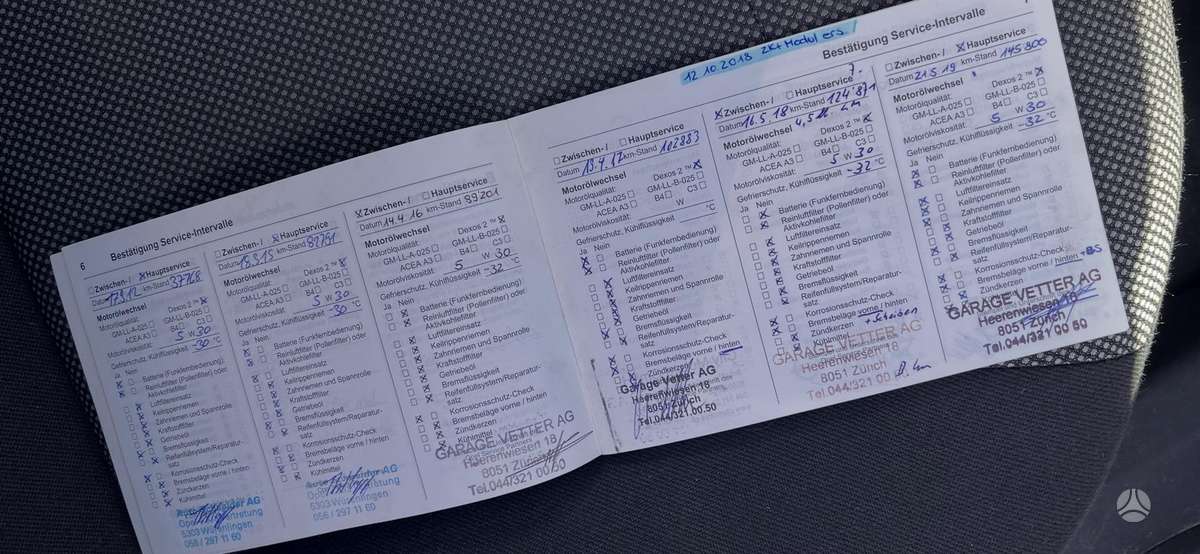 6 Bestätigung Service-Intervalle
Zwischen- / Hauptservice
km-Stand 37768
Motorölwechsel
Motorölqualität: Dexos 2 ™
GM-LL-A-025 GM-LL-B-025
ACEA A3 B4 C3
Motorölviskosität: 5 W 30
Gefrierschutz, Kühlflüssigkeit -30 °C
Ja Nein
Batterie (Funkfernbedienung)
Reinluftfilter (Pollenfilter) oder
Aktivkohlefilter
Luftfiltereinsatz
Keilrippenriemen
Zahnriemen und Spannrolle
Kraftstofffilter
Getriebeöl
Bremsflüssigkeit
Reifenfüllsystem/Reparatur-
satz
Korrosionsschutz-Check
Bremsbeläge vorne / hinten
Zündkerzen
Kühlmittel
5303 Würenlingen
056 / 297 11 60
Zwischen- / Hauptservice
Datum km-Stand
Motorölwechsel
Motorölqualität: Dexos 2 ™
GM-LL-A-025 GM-LL-B-025
ACEA A3 B4 C3
Motorölviskosität: 5 W 30
Gefrierschutz, Kühlflüssigkeit -30 °C
Ja Nein
Batterie (Funkfernbedienung)
Reinluftfilter (Pollenfilter) oder
Aktivkohlefilter
Luftfiltereinsatz
Keilrippenriemen
Zahnriemen und Spannrolle
Kraftstofffilter
Getriebeöl
Bremsflüssigkeit
Reifenfüllsystem/Reparatur-
satz
Korrosionsschutz-Check
Bremsbeläge vorne / hinten
Zündkerzen
Kühlmittel
5303 Würenlingen
056 / 297 11 60
Zwischen- / Hauptservice
Datum 14.4.16 km-Stand 89201
Motorölwechsel
Motorölqualität: Dexos 2 ™
GM-LL-A-025 GM-LL-B-025
ACEA A3 B4 C3
Motorölviskosität: 5 W 30
Gefrierschutz, Kühlflüssigkeit -32 °C
Ja Nein
Batterie (Funkfernbedienung)
Reinluftfilter (Pollenfilter) oder
Aktivkohlefilter
Luftfiltereinsatz
Keilrippenriemen
Zahnriemen und Spannrolle
Kraftstofffilter
Getriebeöl
Bremsflüssigkeit
Reifenfüllsystem/Reparatur-
satz
Korrosionsschutz-Check
Bremsbeläge vorne / hinten
Zündkerzen
Kühlmittel
GARAGE VETTER AG
Heerenwiesen 18
8051 Zürich
Tel.044/321 00 50
12.10.2018 ZKt Modul ers.
Bestätigung Service-Intervalle
Zwischen- / Hauptservice
Datum 13.4.17 km-Stand 102883
Motorölwechsel
Motorölqualität: Dexos 2 ™
GM-LL-A-025 GM-LL-B-025
ACEA A3 B4 C3
Motorölviskosität: W
Gefrierschutz, Kühlflüssigkeit °C
Ja Nein
Batterie (Funkfernbedienung)
Reinluftfilter (Pollenfilter) oder
Aktivkohlefilter
Luftfiltereinsatz
Keilrippenriemen
Zahnriemen und Spannrolle
Kraftstofffilter
Getriebeöl
Bremsflüssigkeit
Reifenfüllsystem/Reparatur-
satz
Korrosionsschutz-Check
Bremsbeläge vorne / hinten
Zündkerzen
Garage Vetter AG
Heerenwiesen 18
8051 Zürich
Tel.044/321.00.50
Zwischen- / Hauptservice
Datum 16.5.18 km-Stand 124'871
Motorölwechsel
Motorölqualität: Dexos 2 ™
GM-LL-A-025 GM-LL-B-025
ACEA A3 B4 C3
Motorölviskosität: 5 W 30
Gefrierschutz, Kühlflüssigkeit -32 °C
Ja Nein
Batterie (Funkfernbedienung)
Reinluftfilter (Pollenfilter) oder
Aktivkohlefilter
Luftfiltereinsatz
Keilrippenriemen
Zahnriemen und Spannrolle
Kraftstofffilter
Getriebeöl
Bremsflüssigkeit
Reifenfüllsystem/Reparatur-
satz
Korrosionsschutz-Check
Bremsbeläge vorne / hinten
Zündkerzen + Scheiben
Kühlmittel
GARAGE VETTER AG
Heerenwiesen 18
8051 Zürich
Tel.044/321 00
Zwischen- / Hauptservice
Datum 21.5.19 km-Stand 145800
Motorölwechsel
Motorölqualität: Dexos 2 ™
GM-LL-A-025 GM-LL-B-025
ACEA A3 B4 C3
Motorölviskosität: 5 W 30
Gefrierschutz, Kühlflüssigkeit -32 °C
Ja Nein
Batterie (Funkfernbedienung)
Reinluftfilter (Pollenfilter) oder
Aktivkohlefilter
Luftfiltereinsatz
Keilrippenriemen
Zahnriemen und Spannrolle
Kraftstofffilter
Getriebeöl
Bremsflüssigkeit
Reifenfüllsystem/Reparatur-
satz
Korrosionsschutz-Check
Bremsbeläge vorne / hinten + BS
GARAGE VETTER AG
Heerenwiesen 18
8051 Zürich
Tel.044/321 00 50